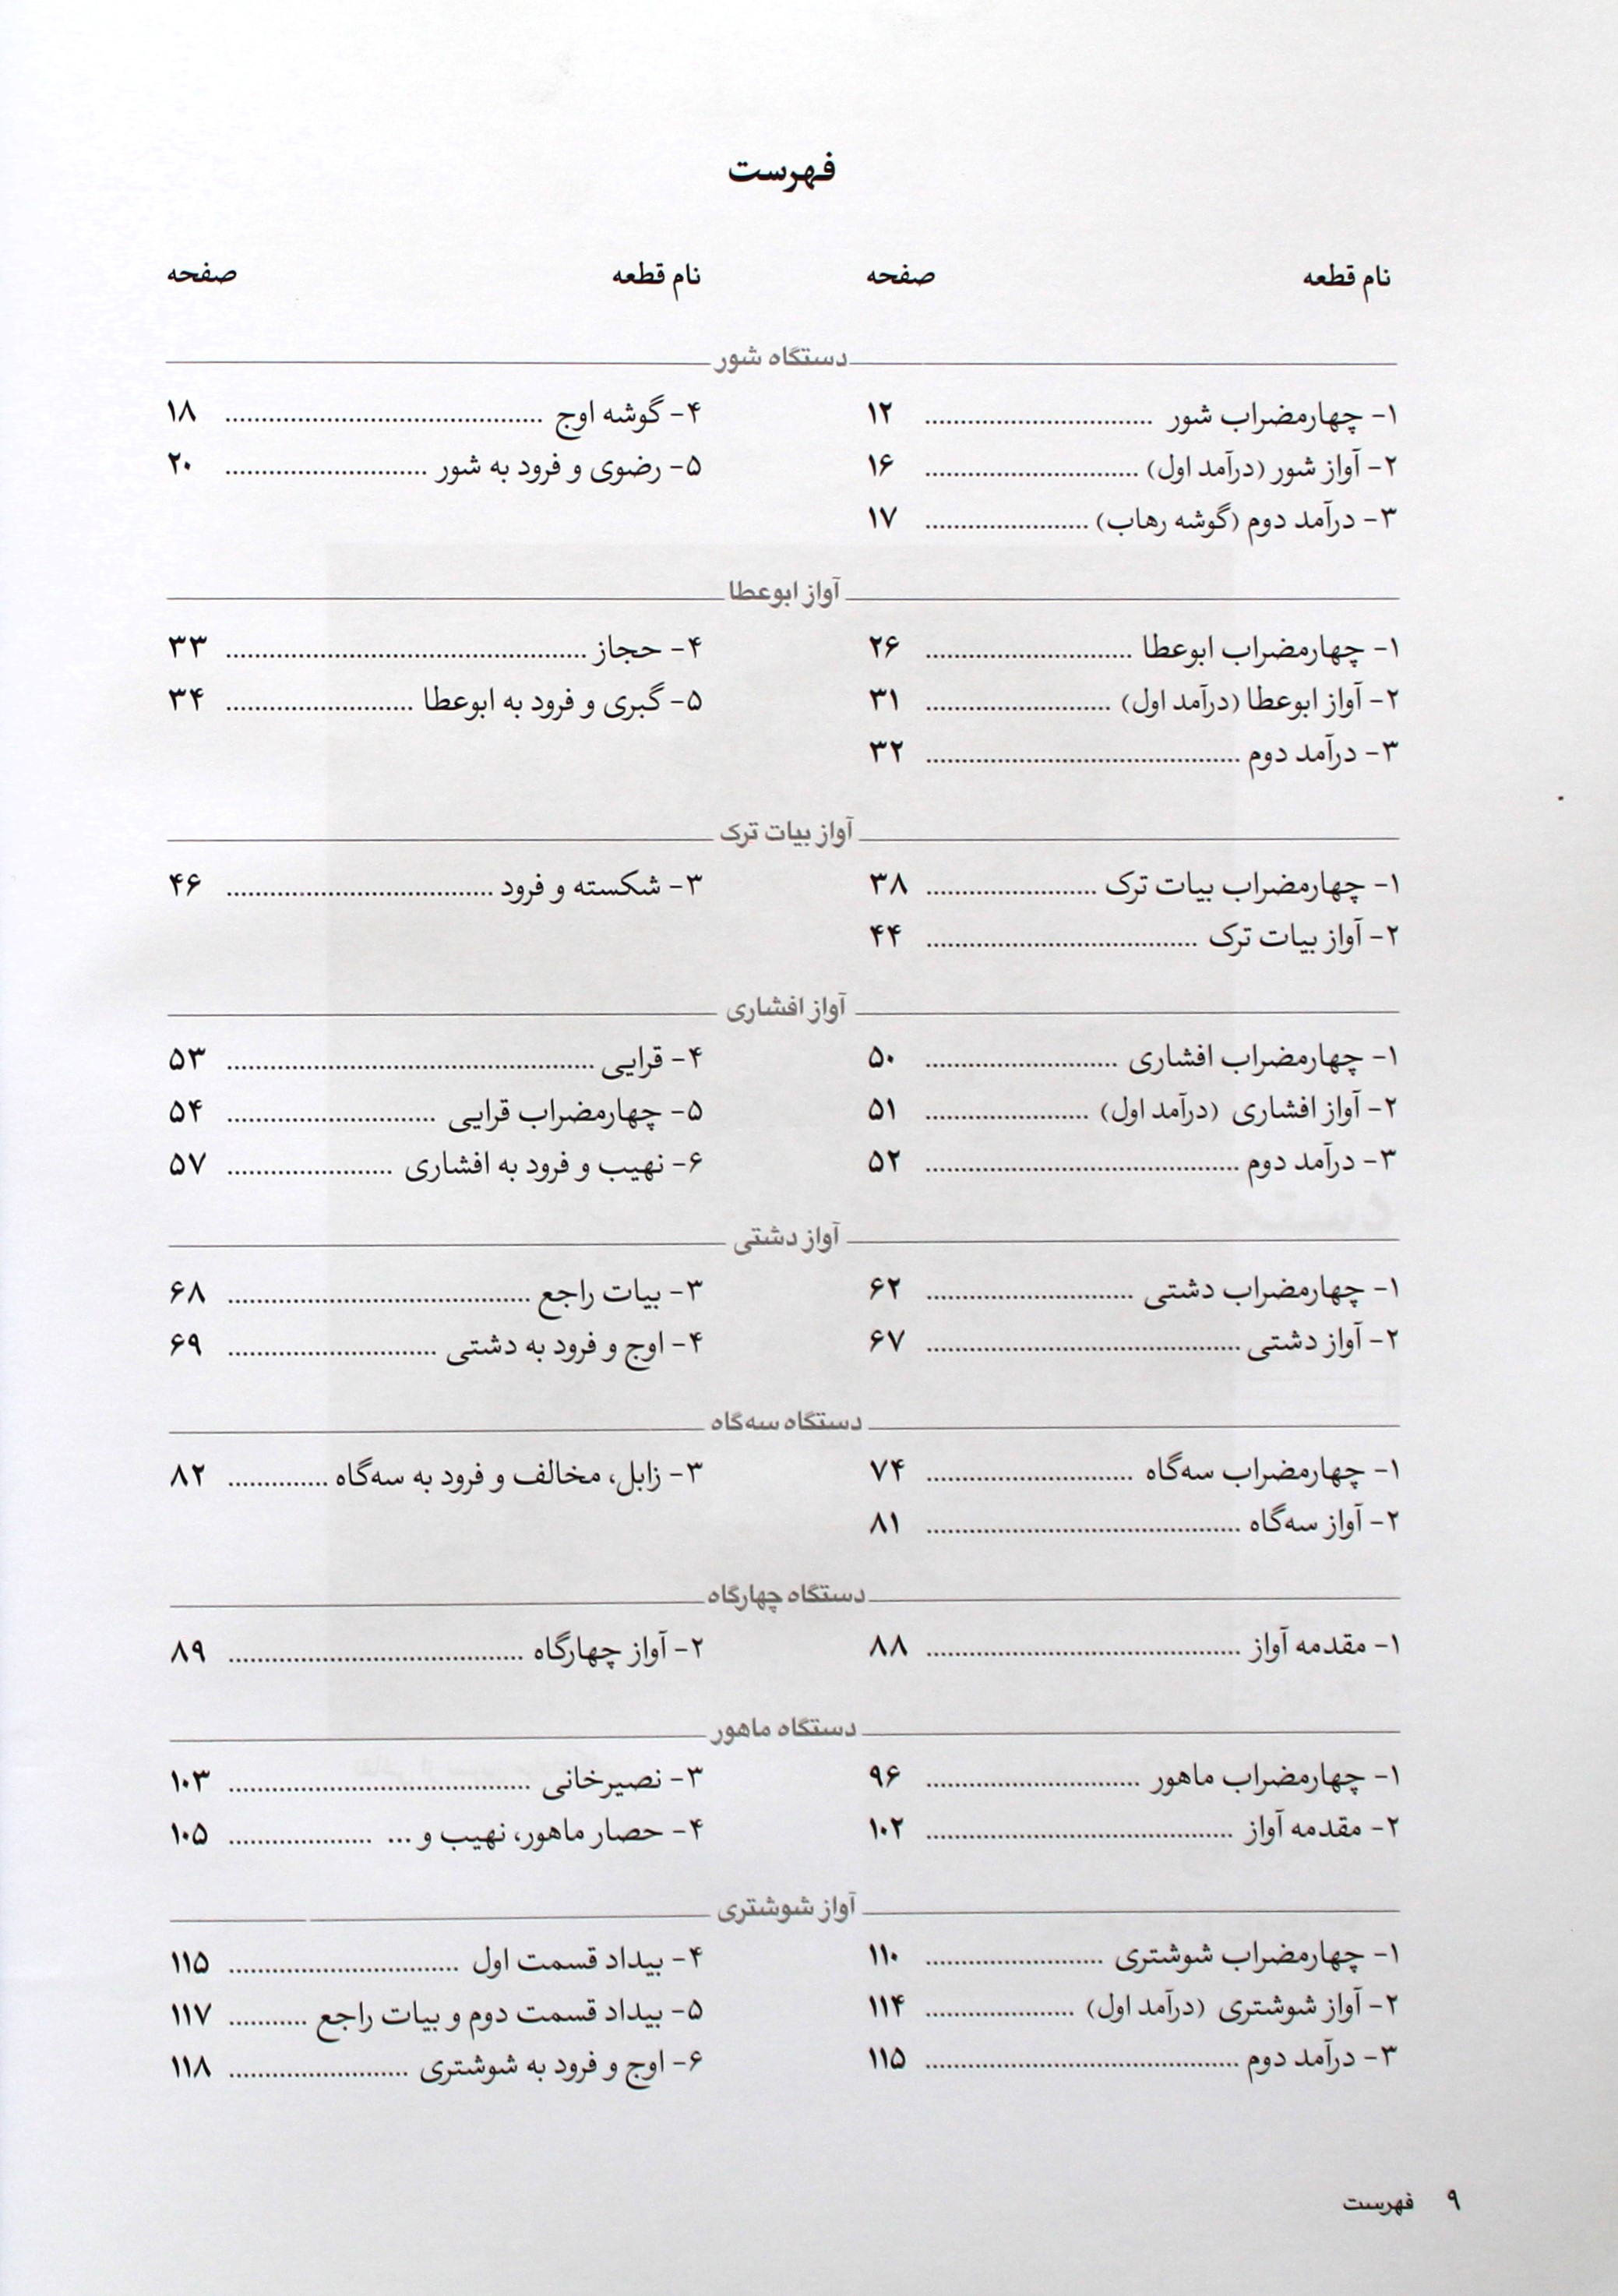 فهرست
نام قطعه صفحه نام قطعه صفحه
دستگاه شور
۱- چهارمضراب شور ................................ ۱۲
۲- آواز شور (درآمد اول) .............................. ۱۶
۳- درآمد دوم (گوشه رهاب) ....................... ۱۷
۴- گوشه اوج ............................................ ۱۸
۵- رضوی و فرود به شور ............................ ۲۰
آواز ابوعطا
۱- چهارمضراب ابوعطا ............................. ۲۶
۲- آواز ابوعطا (درآمد اول) .......................... ۳۱
۳- درآمد دوم ............................................ ۳۲
۴- حجاز .................................................. ۳۳
۵- گبری و فرود به ابوعطا .......................... ۳۴
آواز بیات ترک
۱- چهارمضراب بیات ترک ........................ ۳۸
۲- آواز بیات ترک ...................................... ۴۴
۳- شکسته و فرود ..................................... ۴۶
آواز افشاری
۱- چهارمضراب افشاری ........................... ۵۰
۲- آواز افشاری (درآمد اول) ....................... ۵۱
۳- درآمد دوم ............................................ ۵۲
۴- قرایی ................................................... ۵۳
۵- چهارمضراب قرایی ............................. ۵۴
۶- نهیب و فرود به افشاری ....................... ۵۷
آواز دشتی
۱- چهارمضراب دشتی ............................. ۶۲
۲- آواز دشتی ............................................ ۶۷
۳- بیات راجع .......................................... ۶۸
۴- اوج و فرود به دشتی ............................. ۶۹
دستگاه سه‌گاه
۱- چهارمضراب سه‌گاه ............................. ۷۴
۲- آواز سه‌گاه ............................................ ۸۱
۳- زابل، مخالف و فرود به سه‌گاه .............. ۸۲
دستگاه چهارگاه
۱- مقدمه آواز ............................................ ۸۸
۲- آواز چهارگاه ......................................... ۸۹
دستگاه ماهور
۱- چهارمضراب ماهور .............................. ۹۶
۲- مقدمه آواز ........................................... ۱۰۲
۳- نصیرخانی .......................................... ۱۰۳
۴- حصار ماهور، نهیب و ... .................... ۱۰۵
آواز شوشتری
۱- چهارمضراب شوشتری ......................... ۱۱۰
۲- آواز شوشتری (درآمد اول) ..................... ۱۱۴
۳- درآمد دوم ............................................ ۱۱۵
۴- بیداد قسمت اول ................................ ۱۱۵
۵- بیداد قسمت دوم و بیات راجع ........... ۱۱۷
۶- اوج و فرود به شوشتری ......................... ۱۱۸
۹ فهرست